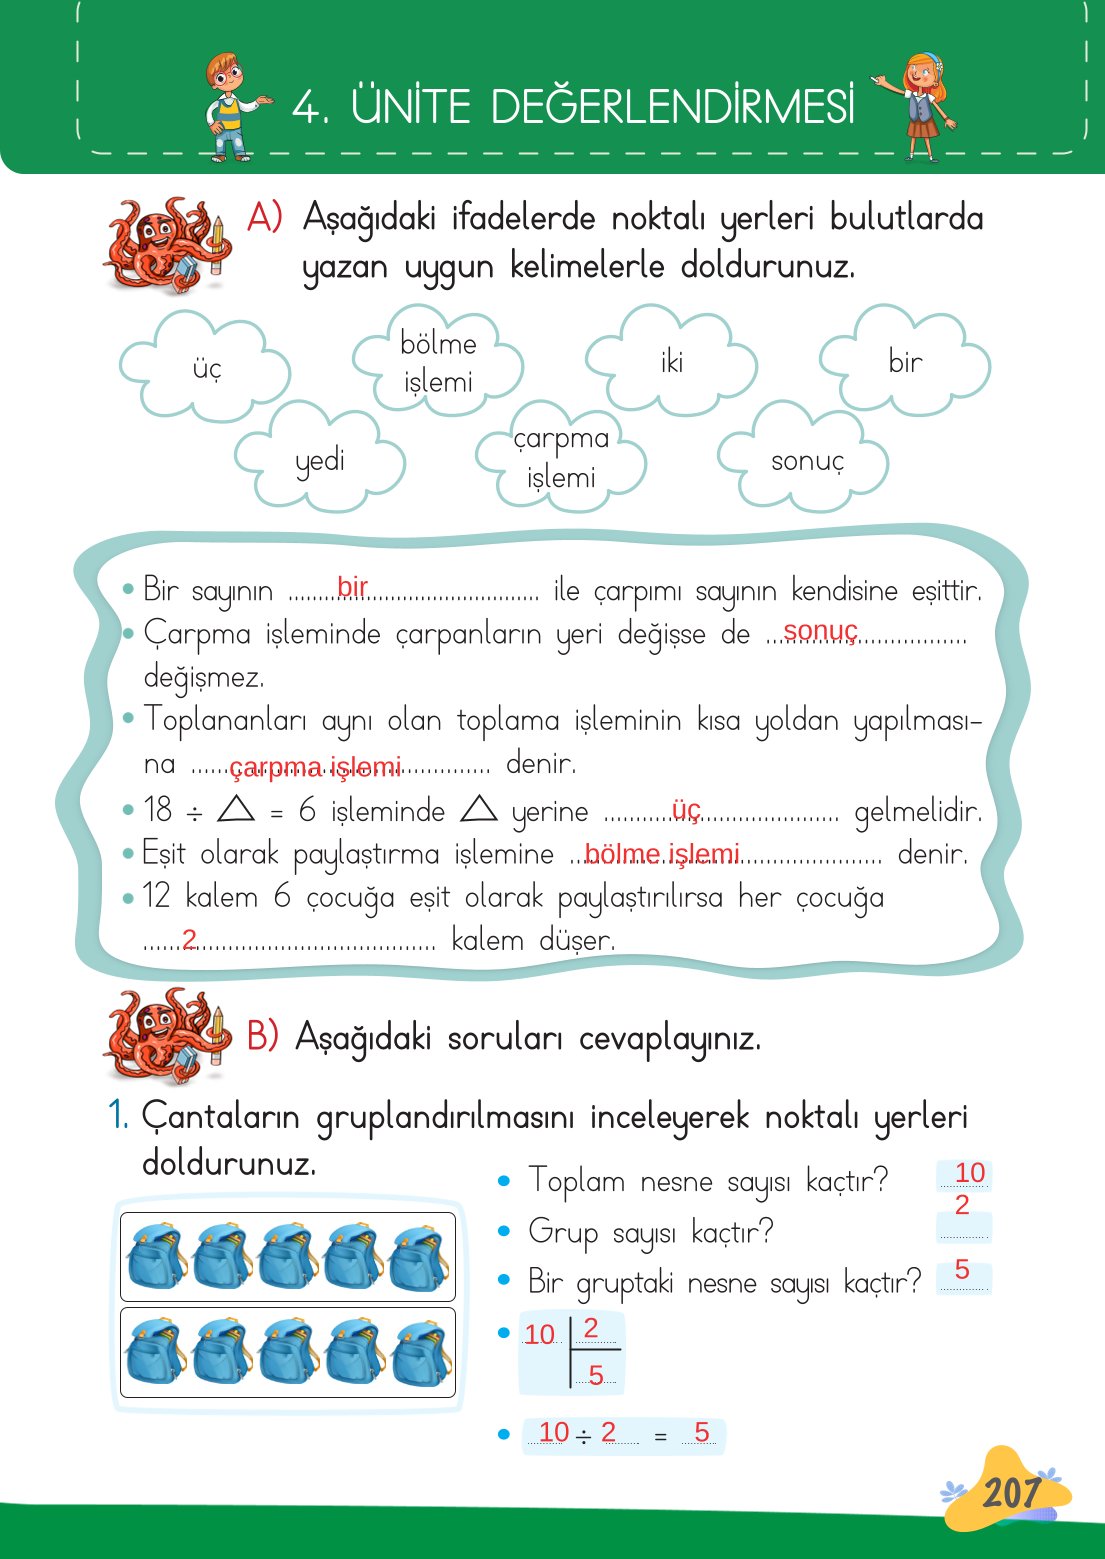 4. ÜNİTE DEĞERLENDİRMESİ
A) Aşağıdaki ifadelerde noktalı yerleri bulutlarda
yazan uygun kelimelerle doldurunuz.
üç
bölme
işlemi
iki
bir
yedi
çarpma
işlemi
sonuç
• Bir sayının ..........bir.......... ile çarpımı sayının kendisine eşittir.
• Çarpma işleminde çarpanların yeri değişse de ...sonuç.................
değişmez.
• Toplananları aynı olan toplama işleminin kısa yoldan yapılması-
na ......çarpma işlemi.............. denir.
• 18 ÷ △ = 6 işleminde △ yerine ..........üç.................... gelmelidir.
• Eşit olarak paylaştırma işlemine ..bölme işlemi...................... denir.
• 12 kalem 6 çocuğa eşit olarak paylaştırılırsa her çocuğa
......2.................................... kalem düşer.
B) Aşağıdaki soruları cevaplayınız.
1. Çantaların gruplandırılmasını inceleyerek noktalı yerleri
doldurunuz.
• Toplam nesne sayısı kaçtır? 10
• Grup sayısı kaçtır? 2
• Bir gruptaki nesne sayısı kaçtır? 5
• 10 2
5
• 10 ÷ 2 = 5
207